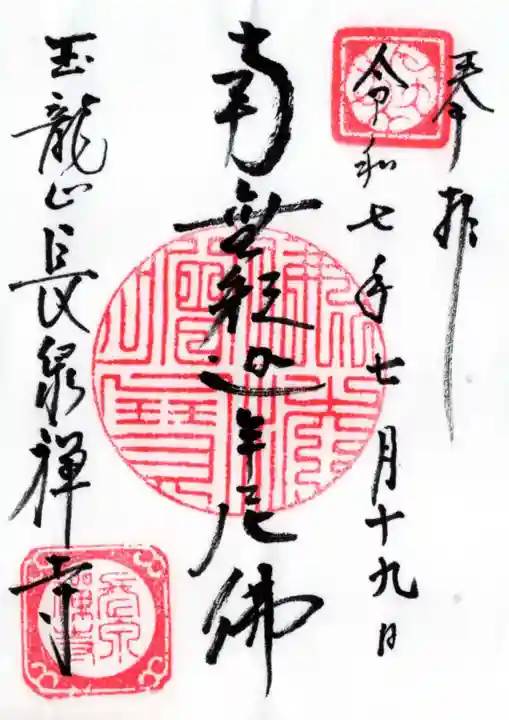 奉拝
令和七年七月十九日
南無釈迦牟尼佛
玉龍山長泉禅寺